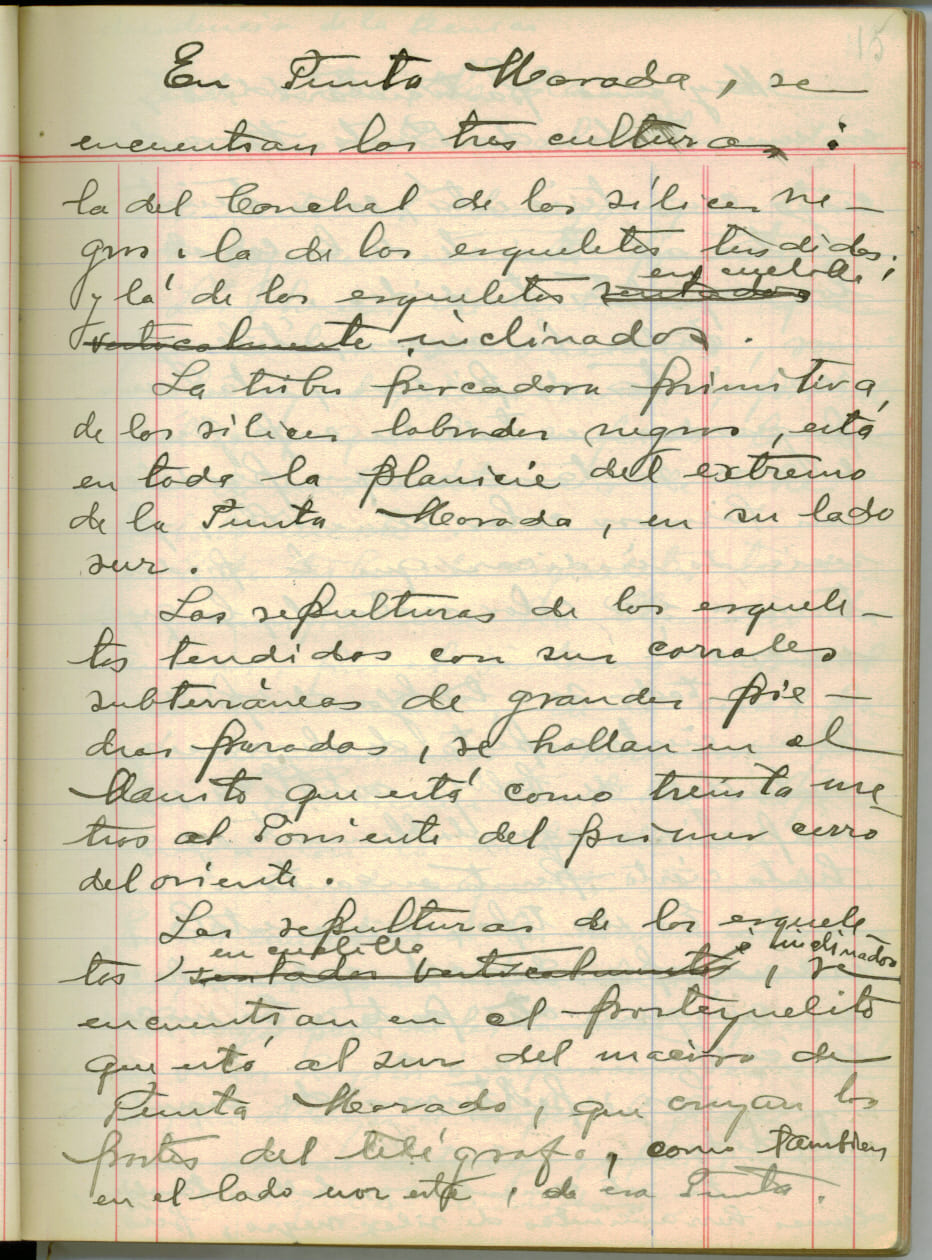 15
En Punta Morada, se
encuentran las tres culturas:
la del Conchal de los sílices ne-
gros; la de los esqueletos tendidos;
en cuclilla
y la de los esqueletos sentados
verticalmente inclinados.
La tribu pescadora primitiva,
de los sílices labrados negros, está
en toda la planicie del extremo
de la Punta Morada, en su lado
sur.
Las sepulturas de los esquele-
tos tendidos con sus corrales
subterráneos de grandes pie-
dras paradas, se hallan en el
llanito que está como treinta me
tros al Poniente del primer cerro
del oriente.
Las sepulturas de los esquele-
en cuclilla é inclinados
tos, sentados verticalmente, se
encuentran en el portezuelito
que está al sur del macizo de
Punta Morada, que cruzan los
postes del telégrafo, como tambien
en el lado nor este, de esa Punta.